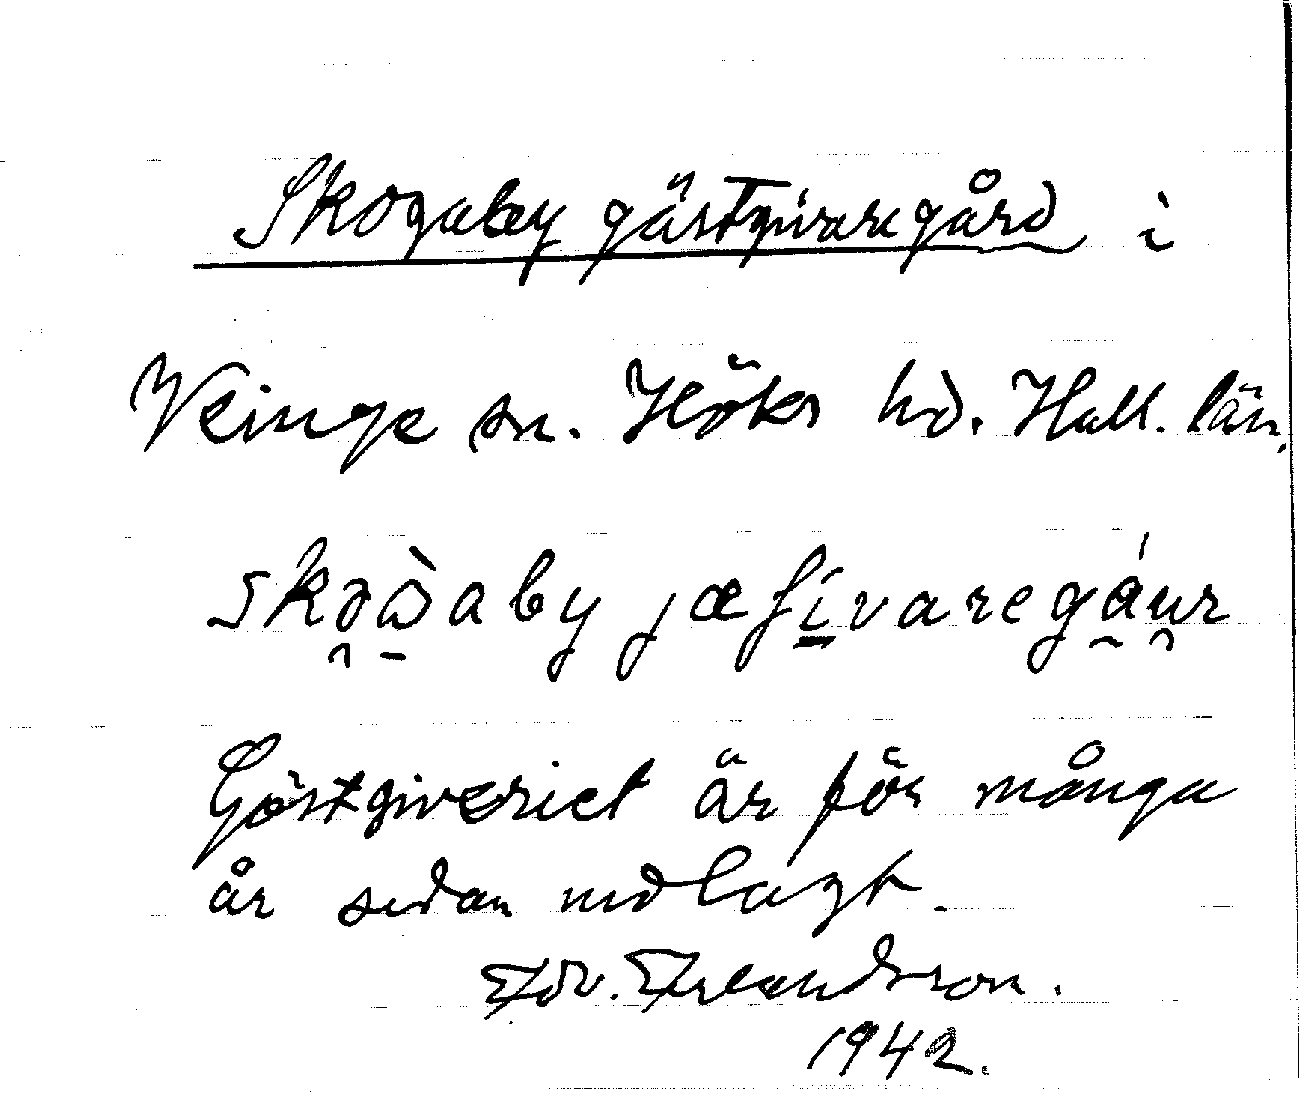 Skogaby gästgivaregård i
Veinge sn. Höks hd. Hall. län.
Gästgiveriet är för många
år sedan nedlagt.
Edv. Erlandsson.
1942.